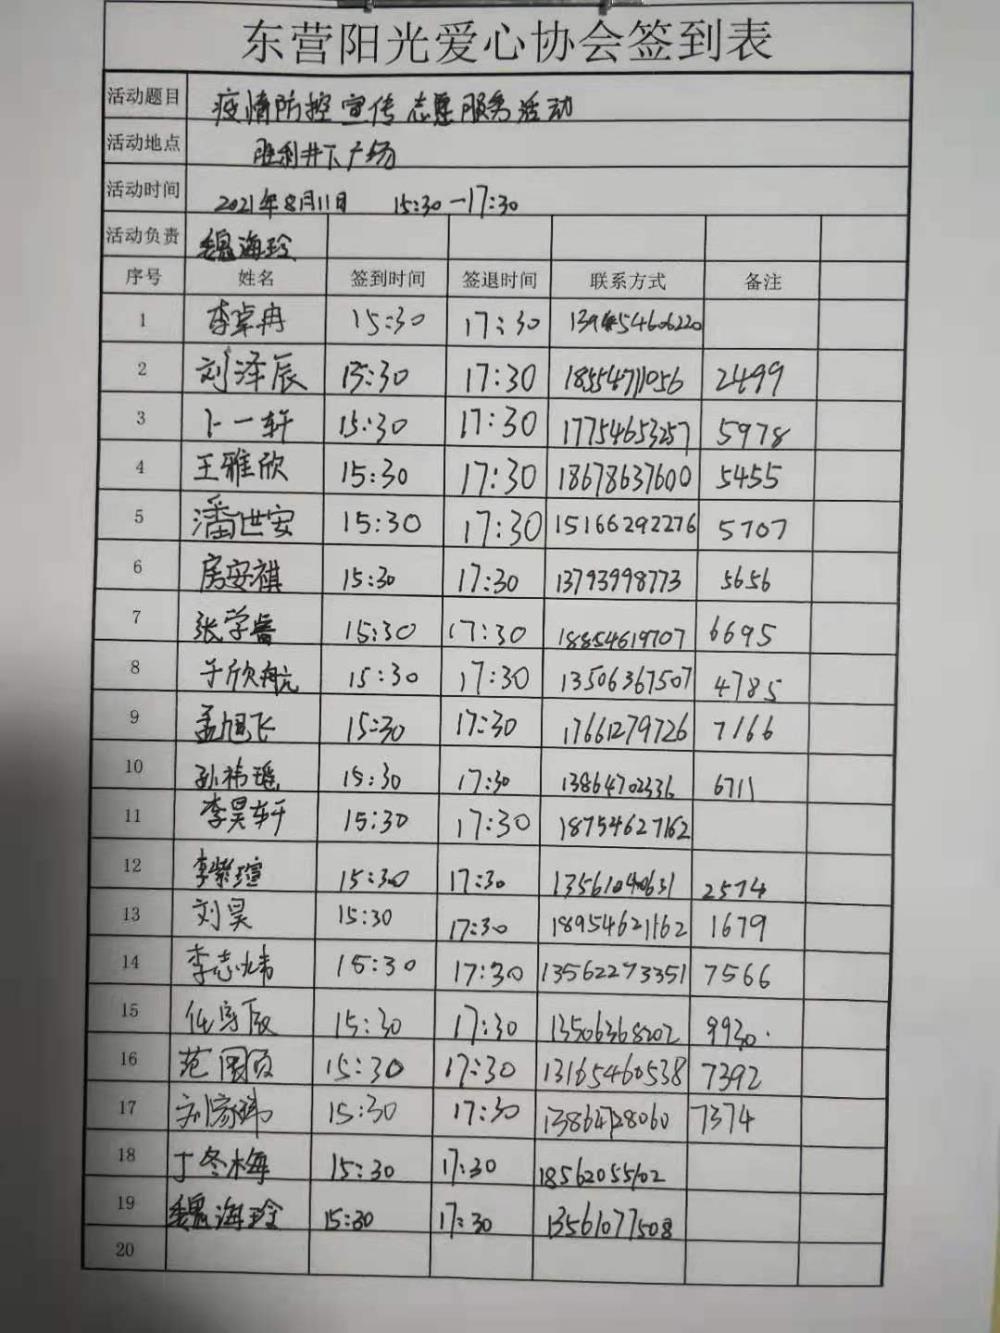 东营阳光爱心协会签到表
活动题目 疫情防控宣传志愿服务活动
活动地点 胜利井下广场
活动时间 2021年8月11日 15:30—17:30
活动负责 魏海玲
序号 姓名 签到时间 签退时间 联系方式 备注
1 李卓冉 15:30 17:30
2 刘泽辰 15:30 17:30 18554711056 2499
3 卜一轩 15:30 17:30 17754653257 5978
4 王雅欣 15:30 17:30 18678637600 5455
5 潘世安 15:30 17:30 15166292276 5707
6 房安祺 15:30 17:30 13793998773 5656
7 张学睿 15:30 17:30 18854619707 6695
8 于欣航 15:30 17:30 13506367507 4785
9 孟旭飞 15:30 17:30 17661279726 7166
10 孙祎瑶 15:30 17:30 13864702336 6711
11 李昊轩 15:30 17:30 18754627162
12 李紫瑄 15:30 17:30 13561040631 2574
13 刘昊 15:30 17:30 18954621162 1679
14 李志炜 15:30 17:30 13562273351 7566
15 15:30 17:30 13506368202 9930
16 15:30 17:30 13165460538 7392
17 刘家玮 15:30 17:30 13864728060 7374
18 丁冬梅 15:30 17:30 18562055702
19 魏海玲 15:30 17:30 13561077508
20